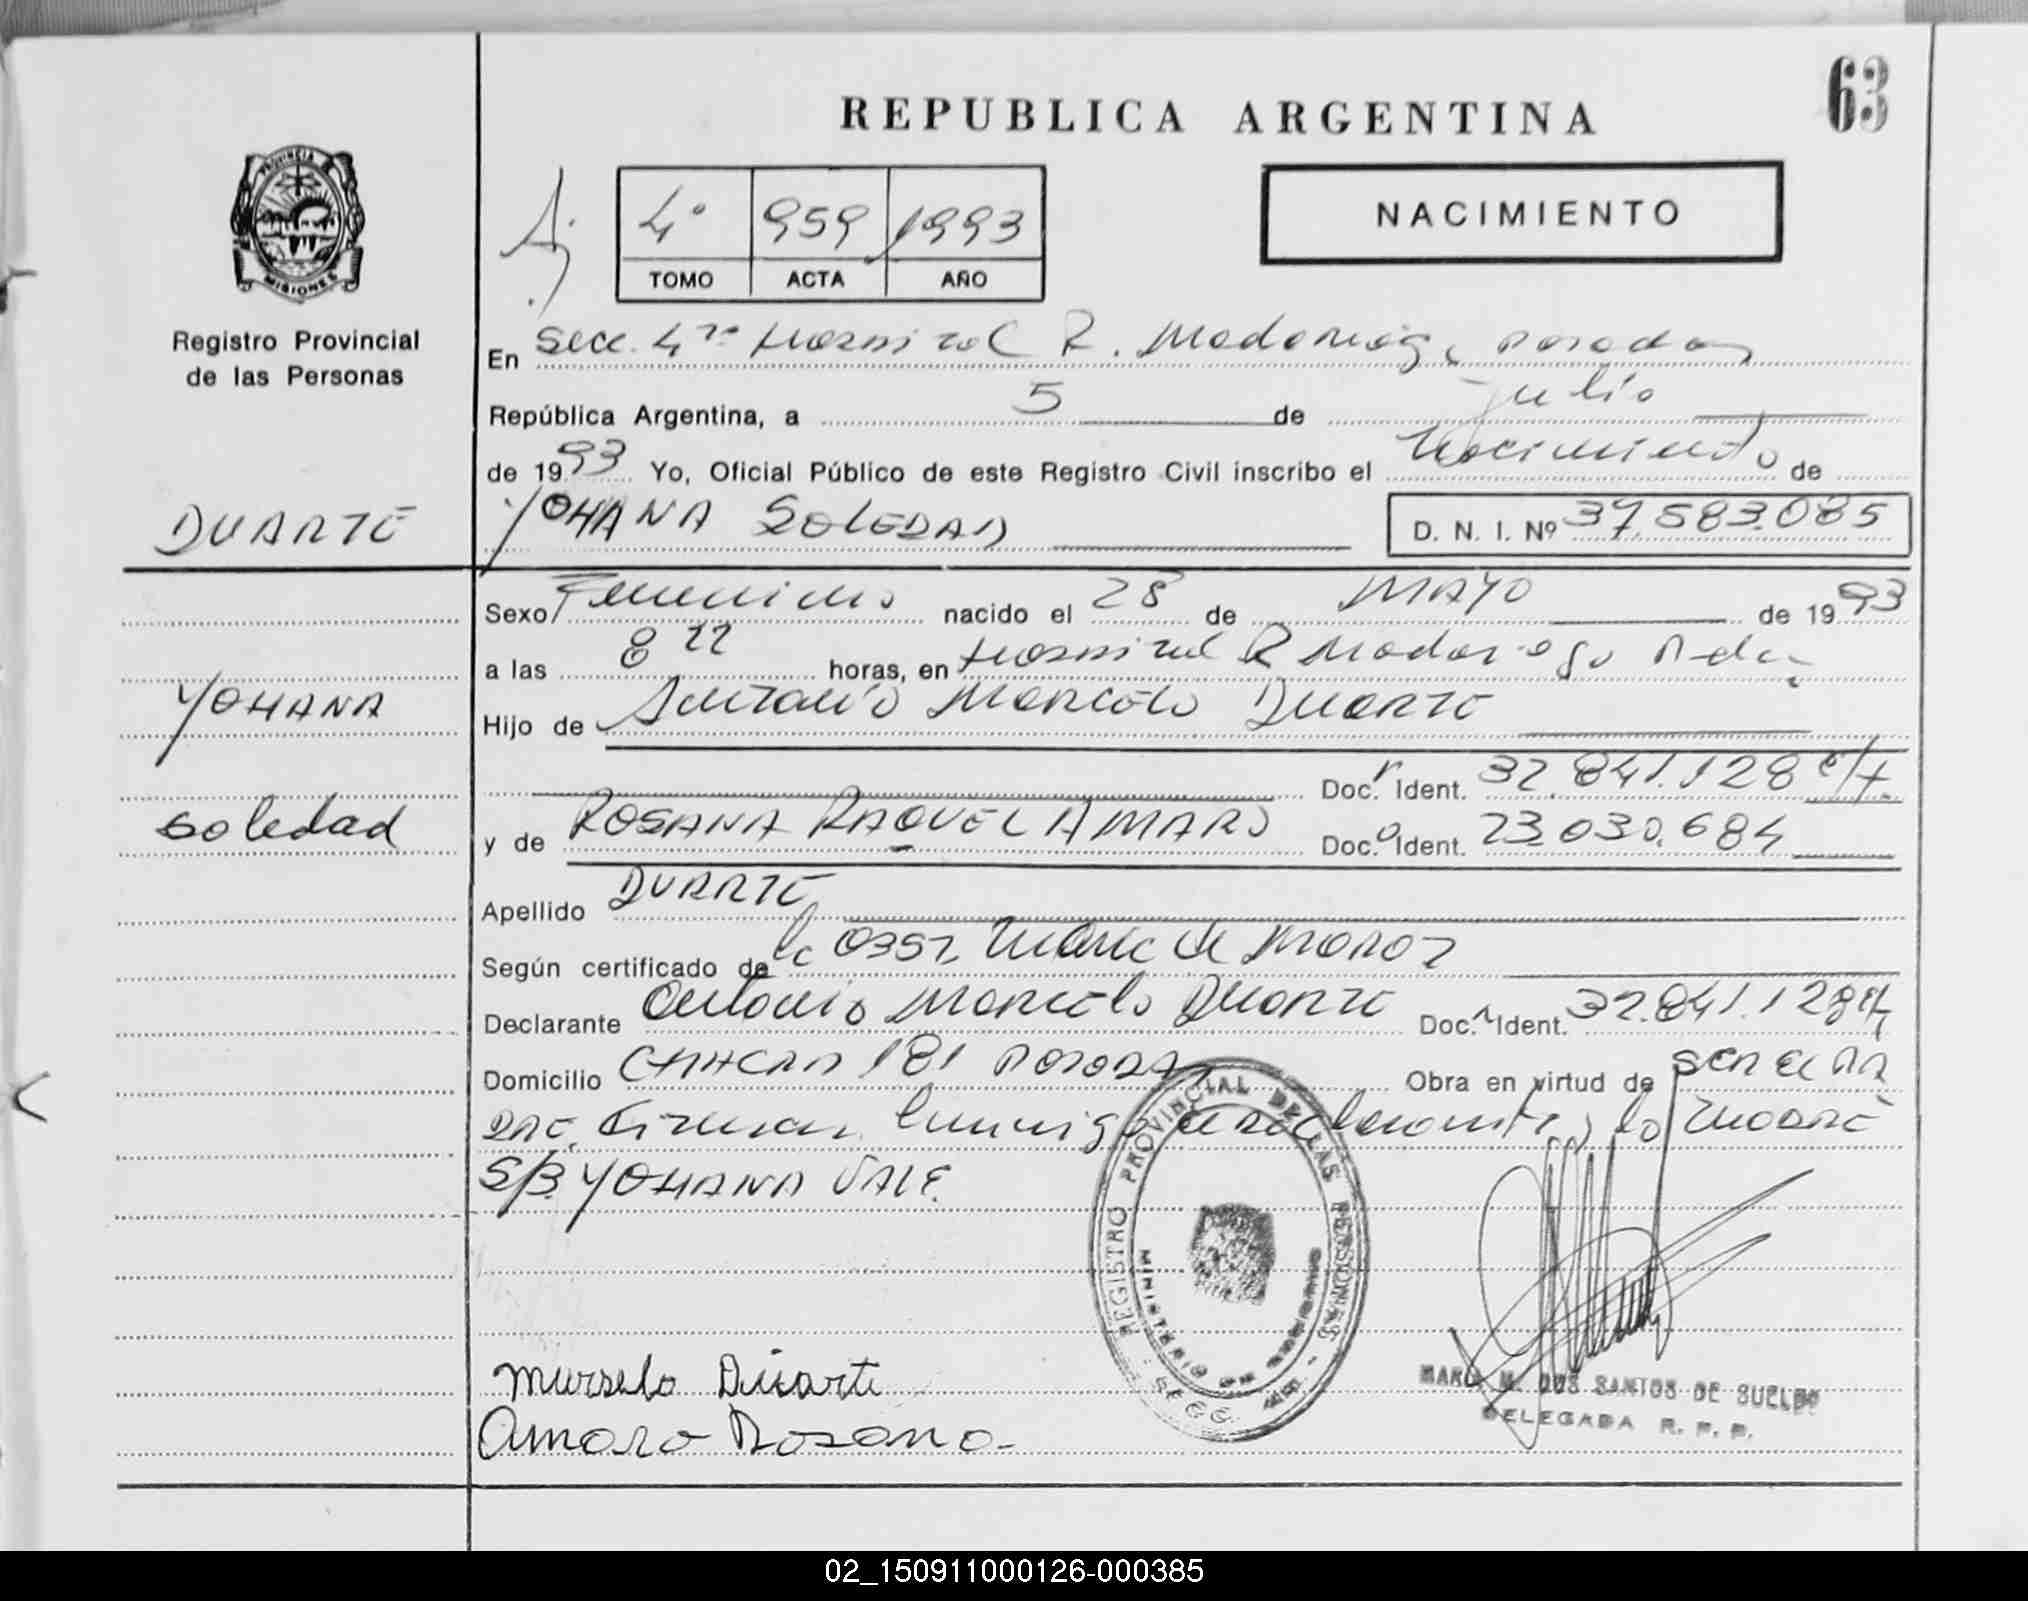 63
REPUBLICA ARGENTINA
PROVINCIA
MISIONES
4° 959 1993
TOMO ACTA AÑO
NACIMIENTO
Registro Provincial
de las Personas
En Secc. 4ta Hospital R. Madariaga, Posadas
República Argentina, a 5 de Julio
de 1993 Yo, Oficial Público de este Registro Civil inscribo el Nacimiento de
DUARTE YOHANA SOLEDAD D. N. I. Nº 37.583.085
Sexo Femenino nacido el 28 de MAYO de 1993
a las 8 22 horas, en Hospital R Madariaga Pdas
YOHANA
Hijo de Antonio Marcelo Duarte
Doc. Ident. 32.841.128
Soledad
y de ROSANA RAQUEL AMARO Doc. Ident. 23.030.684
Apellido DUARTE
Según certificado de la Obst
Declarante Antonio Marcelo Duarte Doc. Ident. 32.841.128
Domicilio CHACRA 181 POSODAS Obra en virtud de ser el PA
DRE. Firman conmigo el declarante y la madre
S/B. YOHANA VALE.
REGISTRO PROVINCIAL DE LAS PERSONAS
MINISTERIO DE GOBIERNO
Marselo Duarte
Amaro Rosana
M. DOS SANTOS DE SUELDO
DELEGADA R. P. P.
02_150911000126-000385